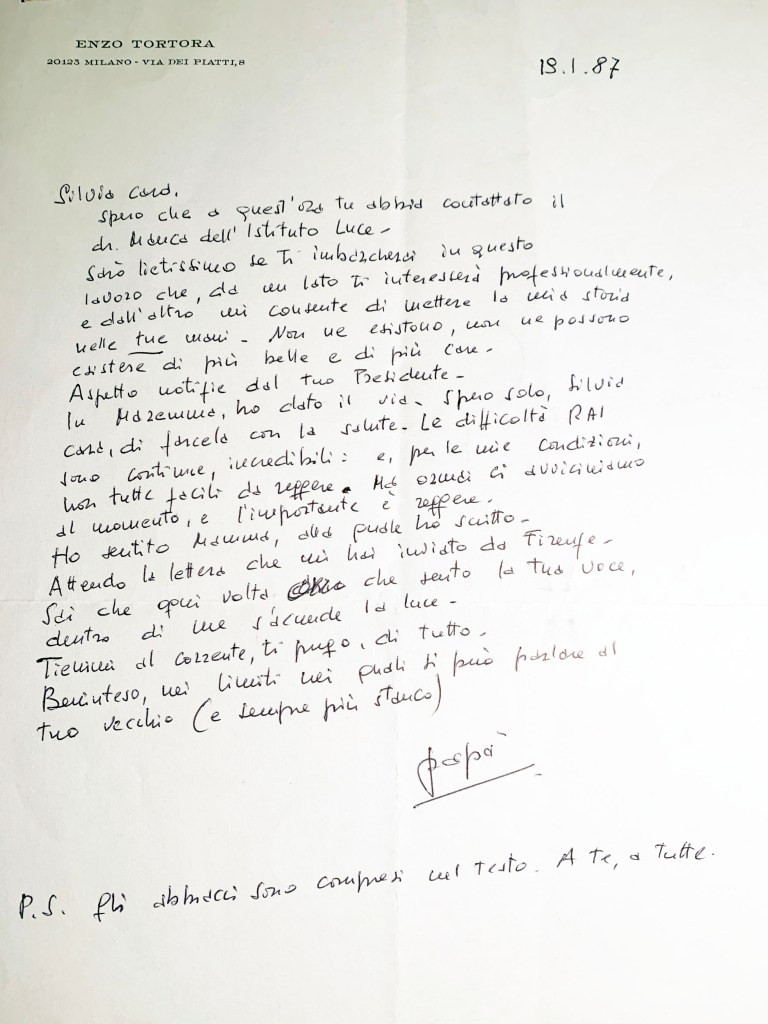 ENZO TORTORA
20123 MILANO - VIA DEI PIATTI, 8
19.1.87
Silvia cara,
spero che a quest'ora tu abbia contattato il
dr. Manca dell'Istituto Luce -
Sarò lietissimo se ti imbarcherai in questo
lavoro che, da un lato ti interesserà professionalmente,
e dall'altro mi consente di mettere la mia storia
nelle tue mani - Non ne esistono, non ne possono
esistere di più belle e di più care -
Aspetto notizie dal tuo Presidente -
In Maremma, ho dato il via - Spero solo, Silvia
cara, di farcela con la salute - Le difficoltà RAI
sono continue, incredibili: e, per le mie condizioni,
non tutte facili da reggere. Ma oramai ci avviciniamo
al momento, e l'importante è reggere.
Ho sentito Mamma, alla quale ho scritto -
Attendo la lettera che mi hai inviato da Firenze -
Sai che ogni volta che sento la tua voce,
dentro di me s'accende la luce -
Tienimi al corrente, ti prego, di tutto -
Beninteso, nei limiti nei quali si può parlare al
tuo vecchio (e sempre più stanco)
papà
P.S. Gli abbracci sono compresi nel testo. A te, a tutte.